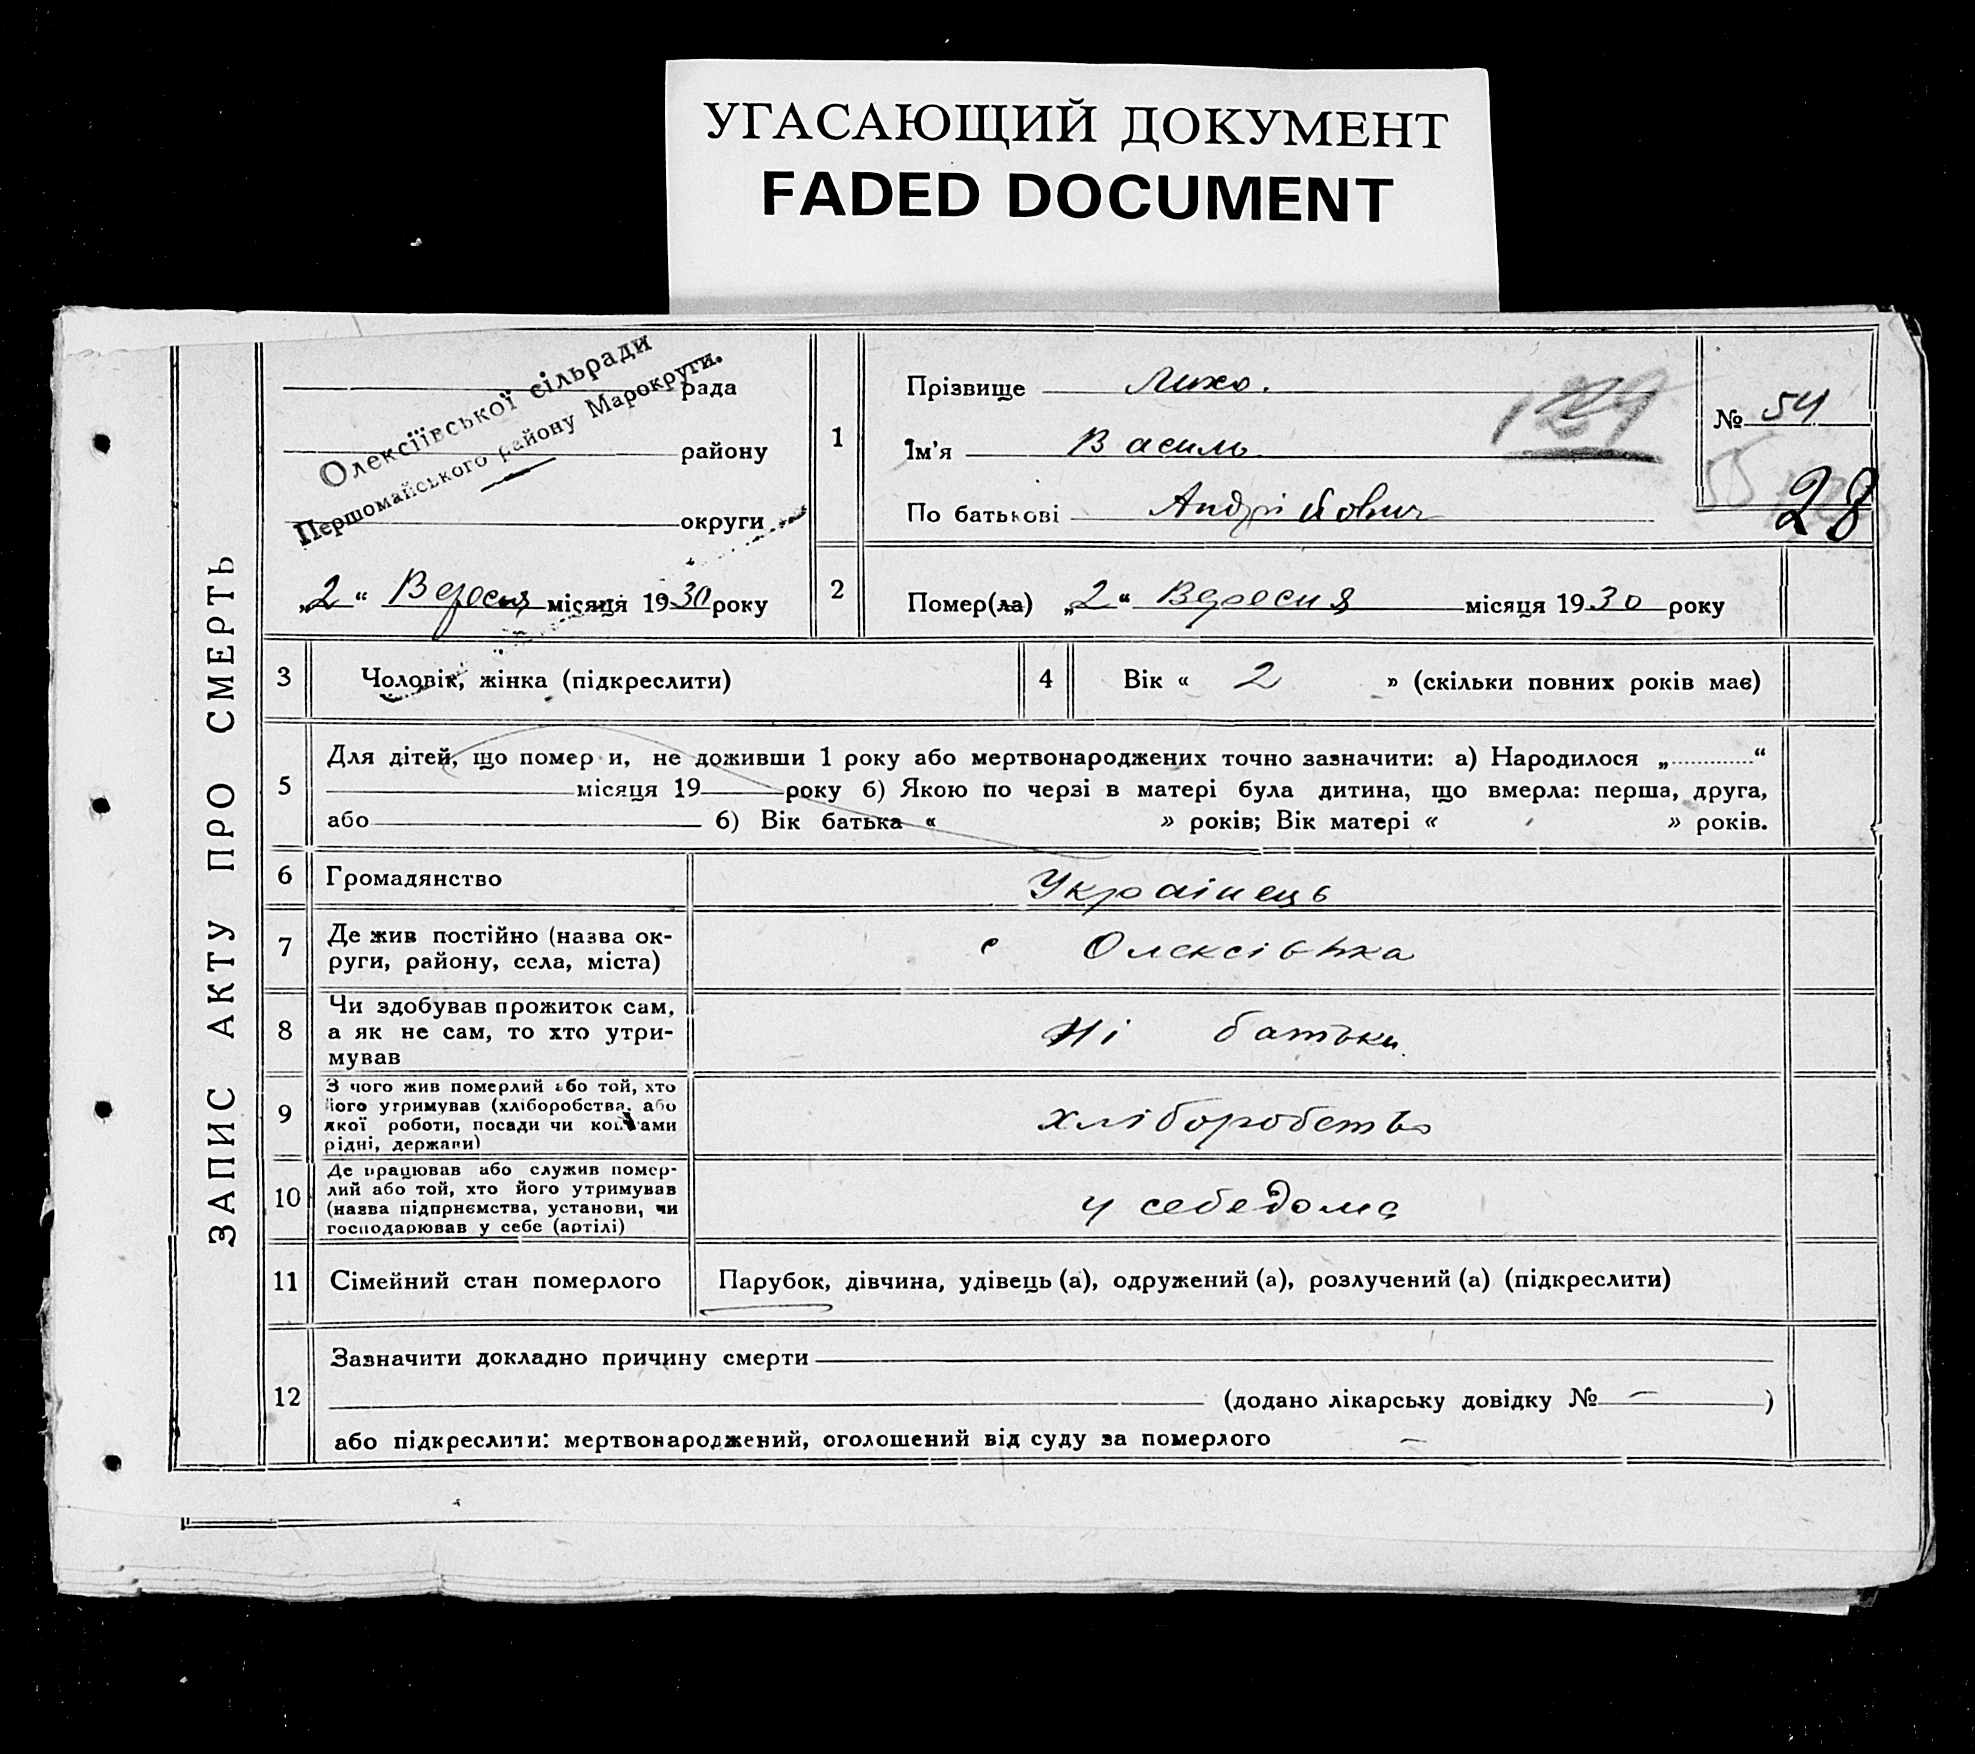 УГАСАЮЩИЙ ДОКУМЕНТ
FADED DOCUMENT
ЗАПИС АКТУ ПРО СМЕРТЬ
Олексіївської сільради
Першомайського району Марокруги.
рада
району
округи
„2“ Вересня місяця 1930 року
1
Прізвище Лихо.
Ім'я Василь
По батькові Андрійович
129
№ 54
55
28
2
Помер(ла) „2“ Вересня місяця 1930 року
3 Чоловік, жінка (підкреслити)
4 Вік « 2 » (скільки повних років має)
5
Для дітей, що помер и, не доживши 1 року або мертвонароджених точно зазначити: а) Народилося „ “
місяця 19 року б) Якою по черзі в матері була дитина, що вмерла: перша, друга,
або б) Вік батька « » років; Вік матері « » років.
6 Громадянство Українець
7 Де жив постійно (назва ок-
руги, району, села, міста)
с Олексівка
8 Чи здобував прожиток сам,
а як не сам, то хто утри-
мував
Ні батьки
9 З чого жив померлий або той, хто
його утримував (хліборобства, або
якої роботи, посади чи коштами
рідні, держави)
хліборобство
10 Де працював або служив помер-
лий або той, хто його утримував
(назва підприємства, установи, чи
господарював у себе (артілі)
у себе дома
11 Сімейний стан померлого Парубок, дівчина, удівець (а), одружений (а), розлучений (а) (підкреслити)
12
Зазначити докладно причину смерти
(додано лікарську довідку № — )
або підкреслити: мертвонароджений, оголошений від суду за померлого —